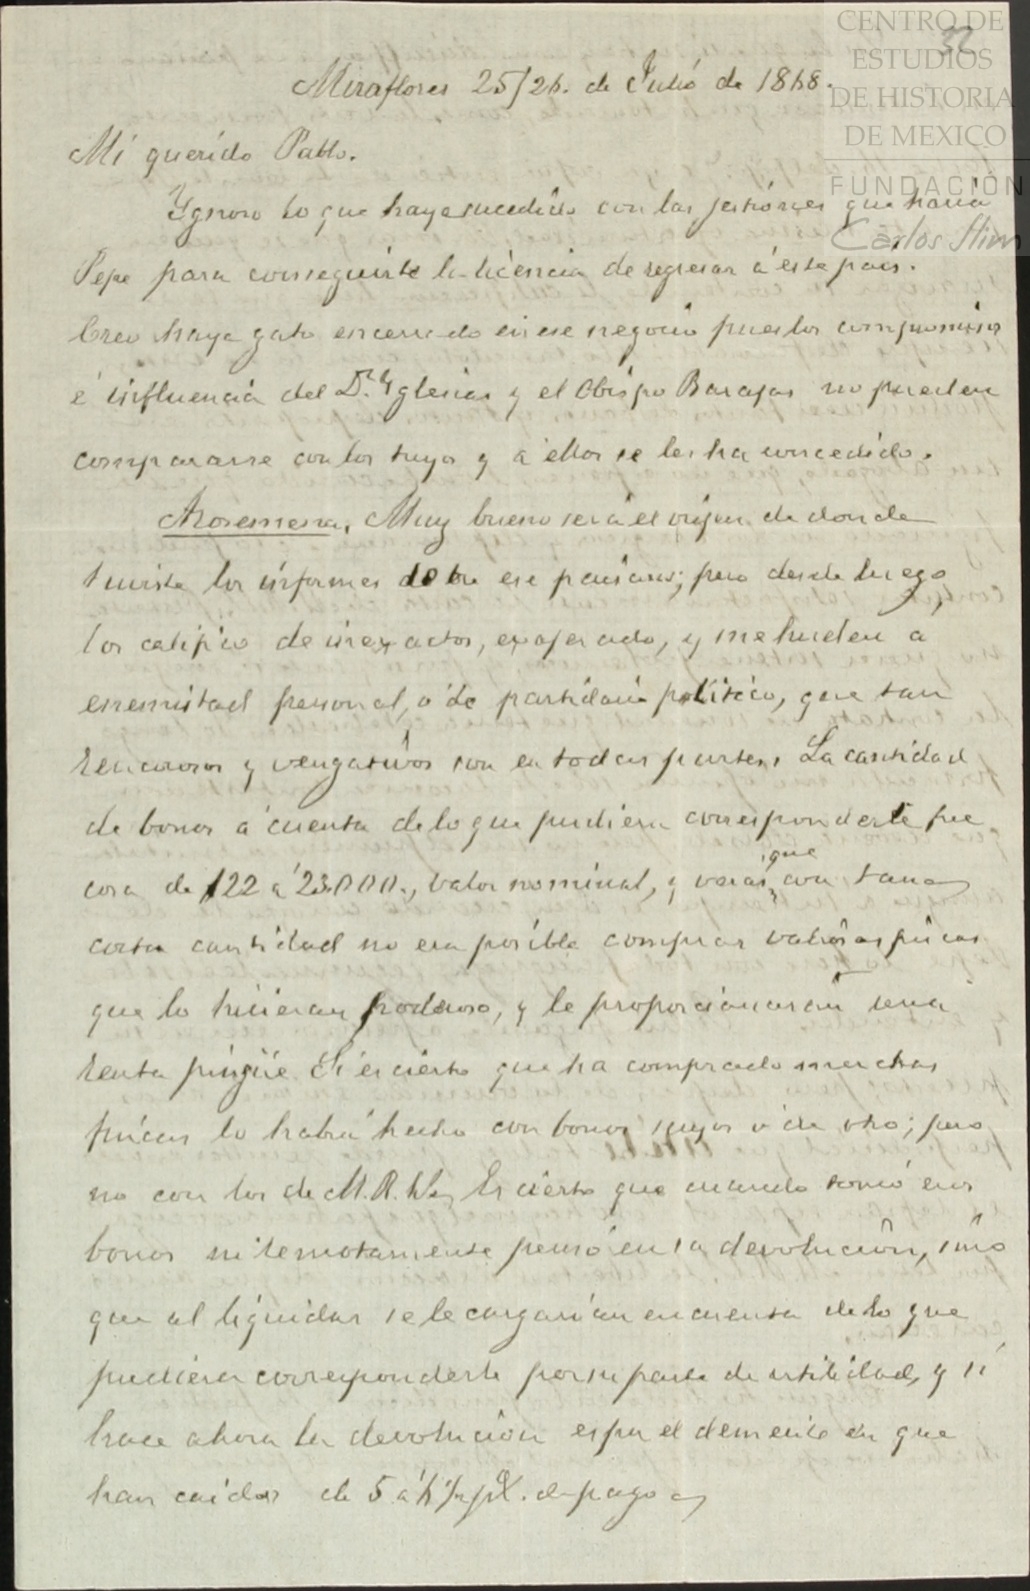 CENTRO DE
ESTUDIOS
DE HISTORIA
DE MEXICO
FUNDACIÓN
Carlos Slim
32
Miraflores 25/26. de Julió de 1868.
Mi querido Pablo.
Ygnoro lo que haya sucedido con las jestiónes que haria
Pepe para conseguirte la licencia de regresar á este pais.
Creo haya gato encerrado en ese negocio pues los compromisos
é influencia del D. Yglesias y el Obispo Barajas no pueden
compararse con los tuyos y á ellos se les ha concedido.
Arosemena. Muy bueno será el orijen de donde
tuviste los informes sobre ese paisano; pero desde luego,
los califico de inexactos, exajerados, y me hueden a
enemistad personal, o de partidario político, que tan
rencorosos y vengativos son en todas partes. La cantidad
de bonos á cuenta de lo que pudiera corresponderle fue
cosa de 122 á 23.000., valor nominal, y verás, que con tan
corta cantidad no era posible comprar valiosas fincas
que lo hicieran poderoso, y le proporcionaran una
renta pingüe. Si es cierto que ha comprado muchas
fincas lo habrá hecho con bonos suyos ó de otro; pero
no con los de M. R. Wy. Es cierto que cuando tomó esos
bonos ni remotamente pensó en la devolución, sino
que al liquidar se le cargarían en cuenta de lo que
pudiera corresponderle por su parte de utilidad, y si
hace ahora la devolución es por el demerito en que
han caido de 5 á 6 de pago